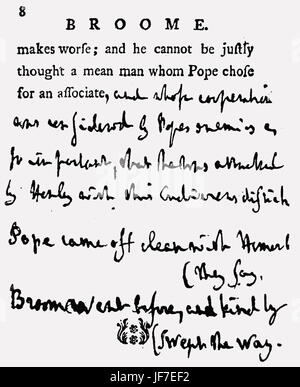 8
BROOME.
makes worſe; and he cannot be juſtly
thought a mean man whom Pope choſe
for an aſſociate, and whose cooperation
was considered by Popes enemies as
so important, that he was attacked
by Henley with this ludicrous distich
Pope came off clean with Homer but
(they say,
Broome went before, and kindly
(swept the way.
alamy stock photo
JF7EF2